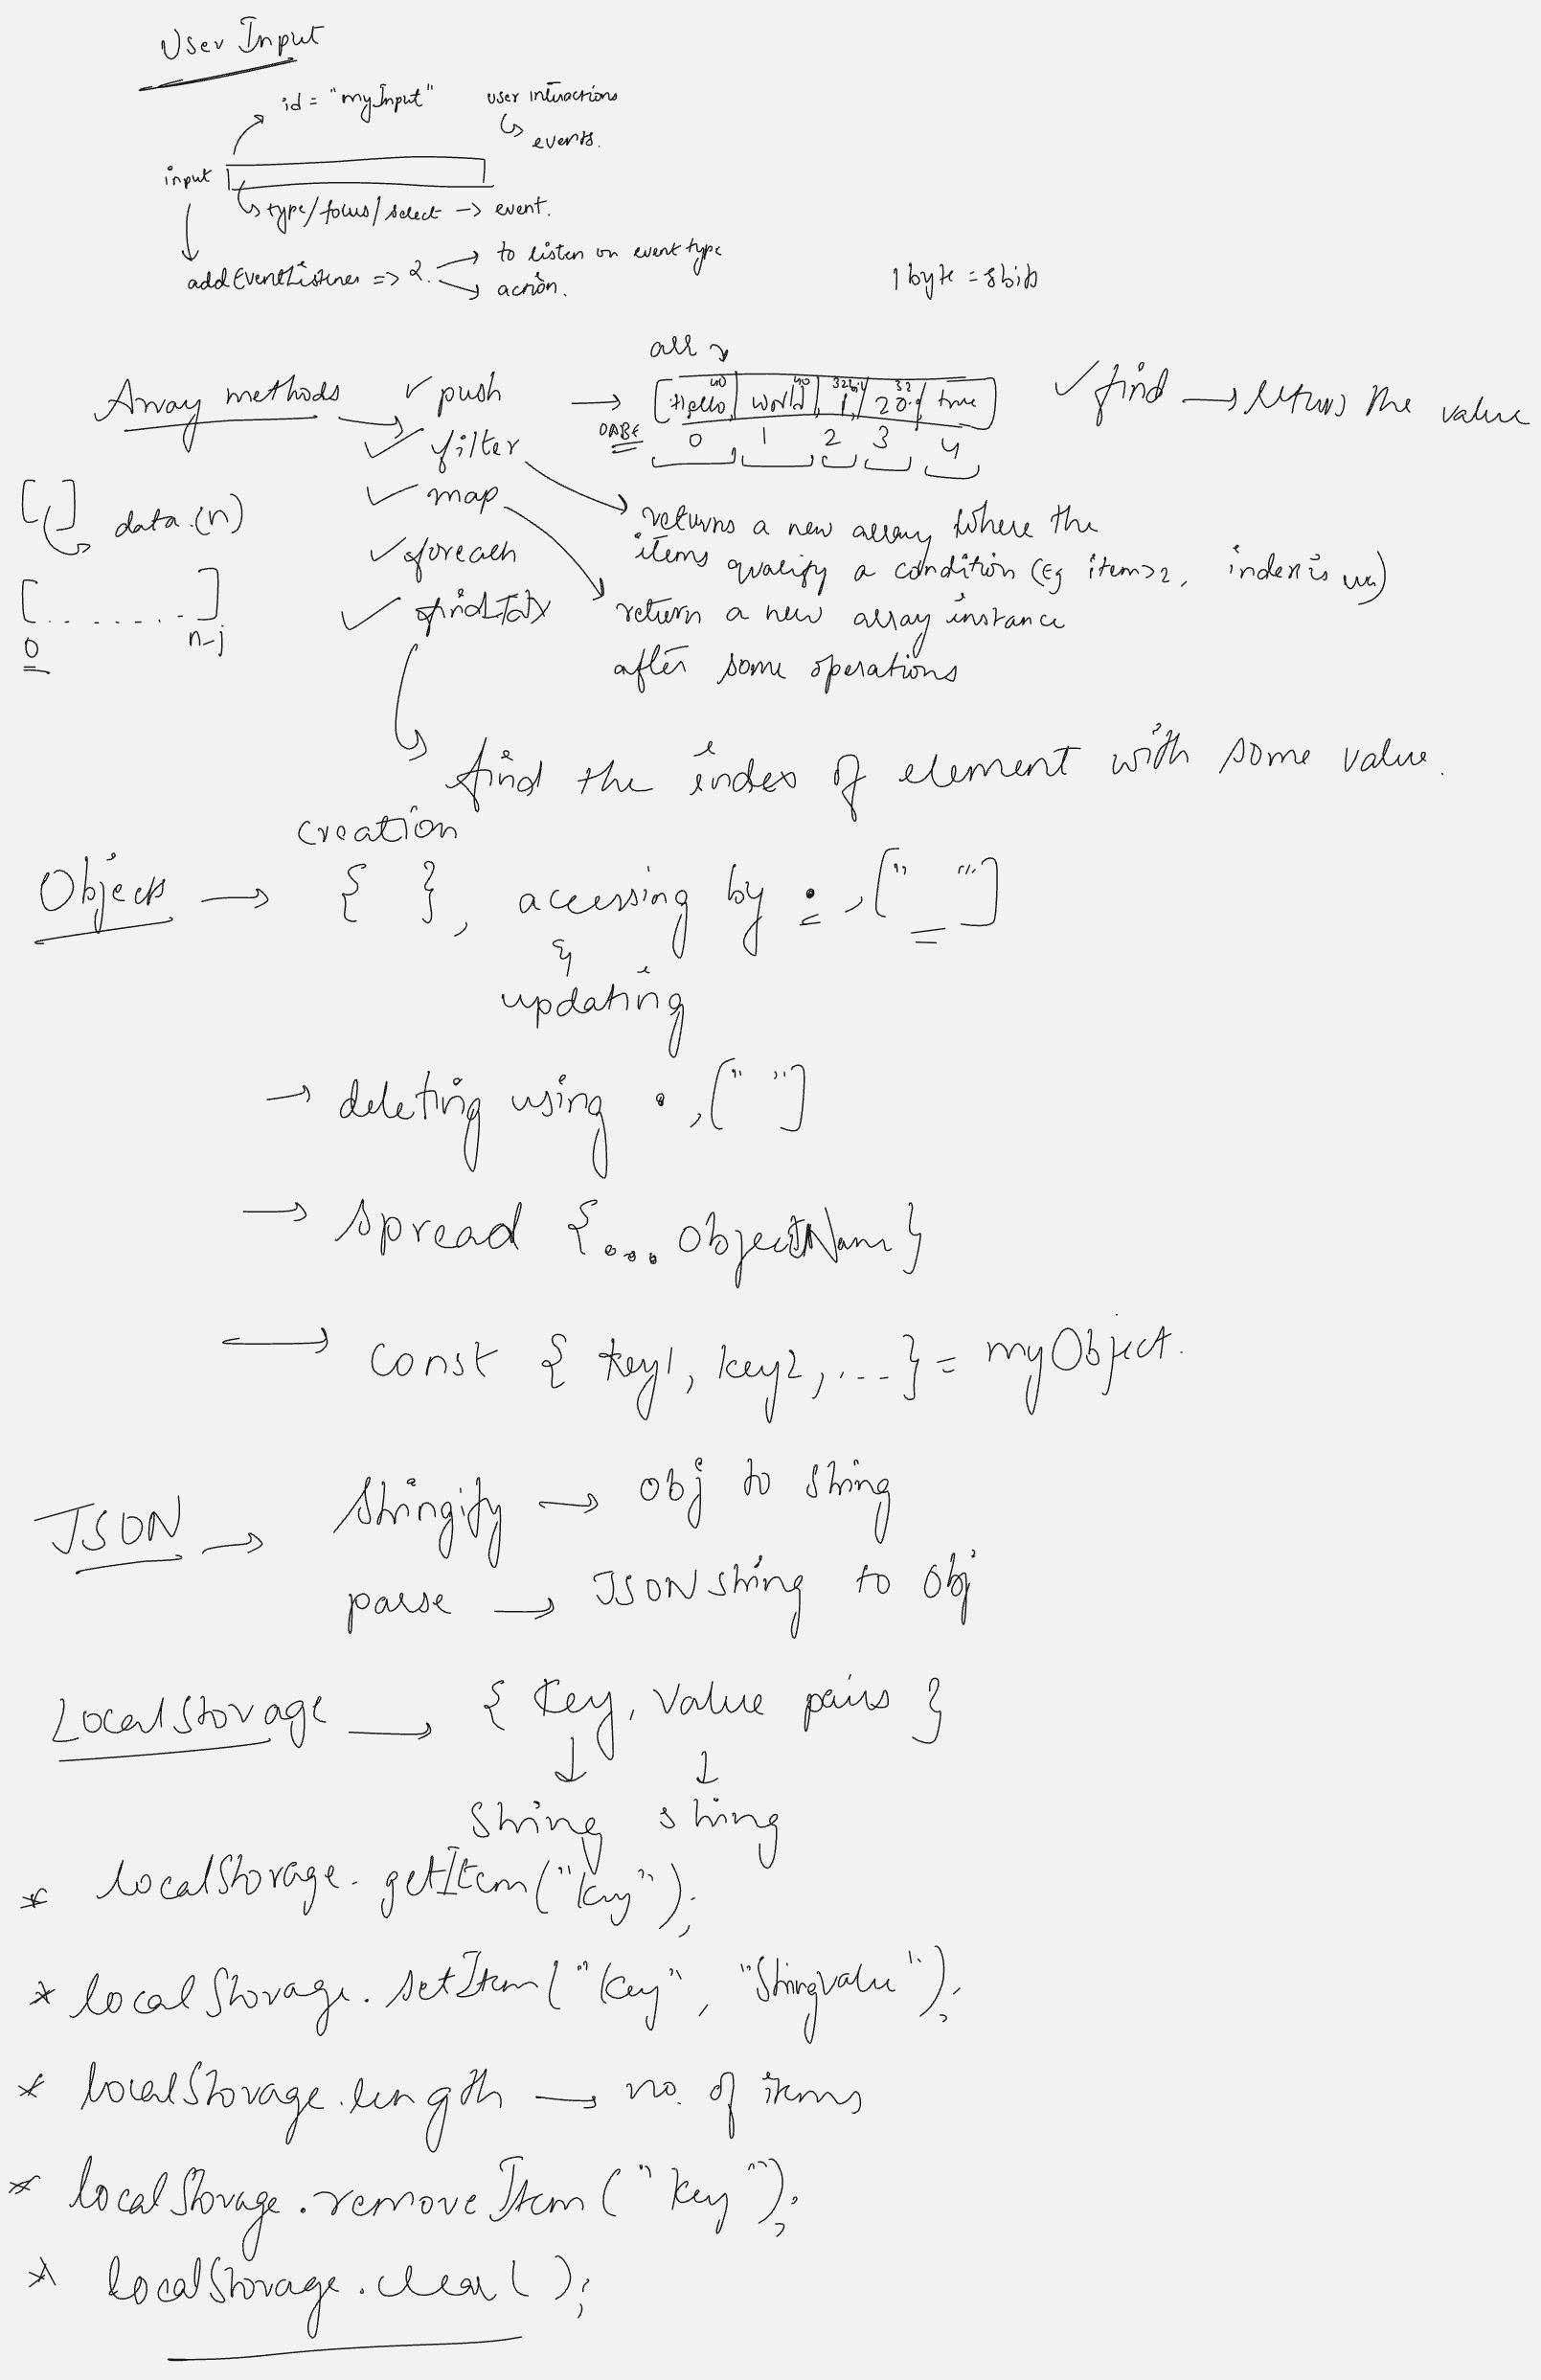 User Input
id = "myInput"
user interactions
events.
input
type/focus/select → event.
addEventListener => 2.
to listen on event type
action.
1 byte = 8 bits
arr
Array methods
✓ push → [Hello, world, 1, 20, true]
40 40 32bit 32
0 1 2 3 4
✓ find → returns the value
✓ filter
returns a new array where the
items qualify a condition (Eg item>2,
✓ map
return a new array instance
after some operations
✓ foreach
✓ findIdx
find the index of element with some value.
[ ] data (n)
[ . . . . . . . . ]
0 n-1
creation
Objects → { }, accessing by ., [" "]
&
updating
→ deleting using ., [" "]
→ spread {... objectName}
→ const { key1, key2, ... } = myObject.
JSON → stringify → obj to string
parse → JSON string to obj
LocalStorage → { key, value pairs }
↓ ↓
string string
* localStorage.getItem("key");
* localStorage.setItem("key", "Stringvalue");
* localStorage.length → no. of items
* localStorage.removeItem("key");
* localStorage.clear();